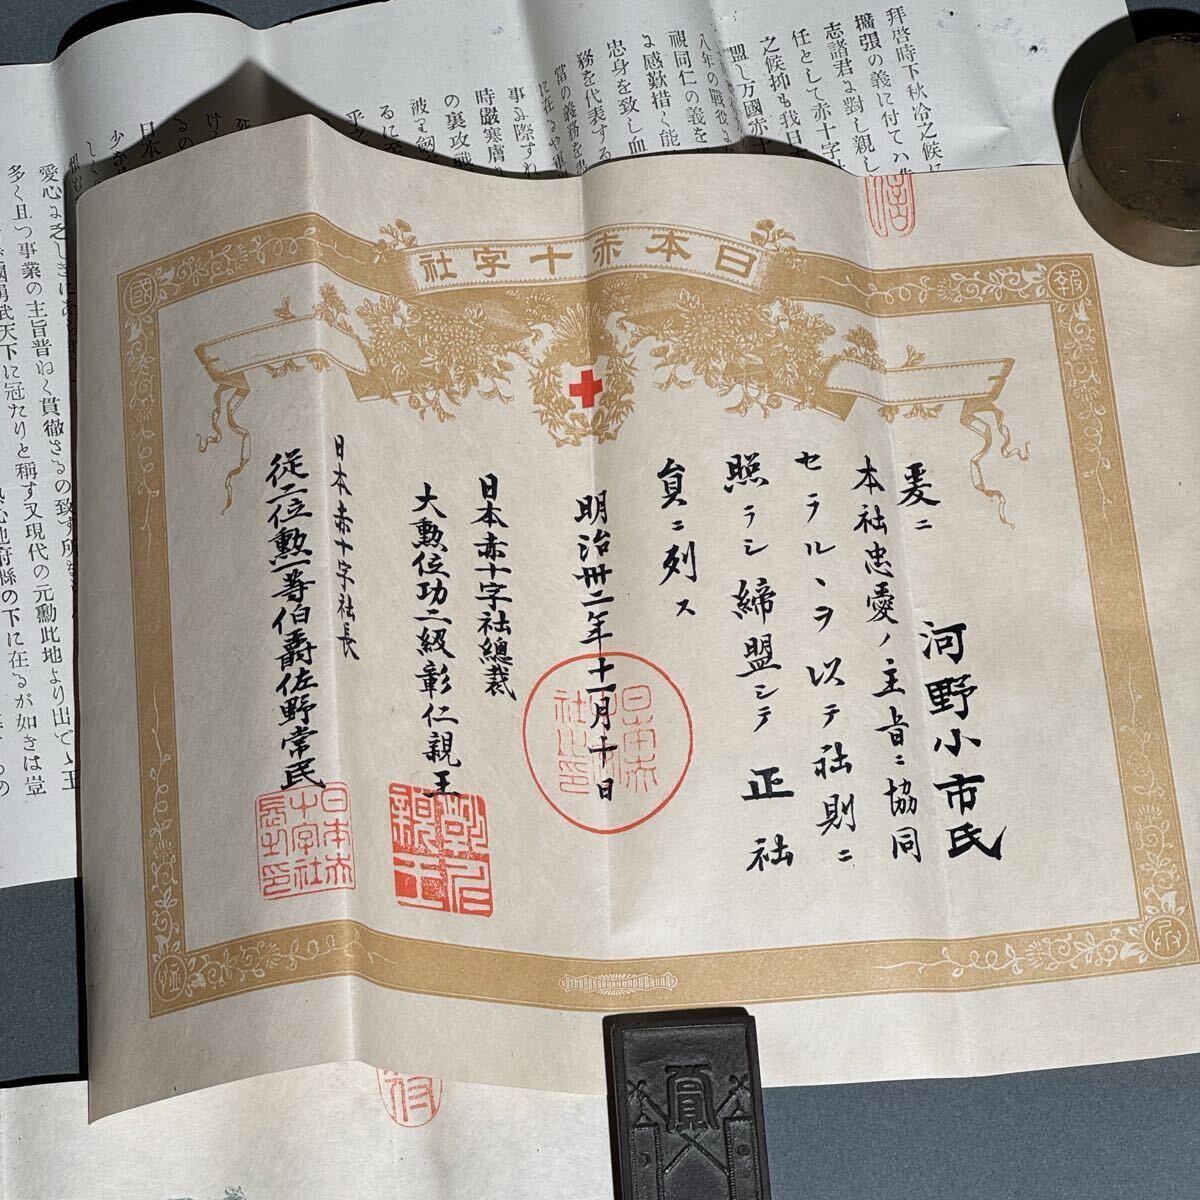 日本赤十字社
報
國
恤
河野小市氏
爰ニ
本社忠愛ノ主旨ニ協同
セラルヽヲ以テ社則ニ
照ラシ締盟シテ正社
員ニ列ス
明治卅二年十一月十日
日本赤十字社總裁
大勲位功二級彰仁親王
日本赤十字社長
從二位勲一等伯爵佐野常民
日本赤十字社之印
彰仁親王
日本赤十字社長之印
拜啓時下秋冷之候に
擴張の義に付てハ
志諸君に對し親し
任として赤十字
之候抑も我日本
盟し万國赤十
八年の戰役
視同仁の義を
よ感歎措く能
忠身を致し血
務を代表する
當の義務を
に在るや軍
事よ際すれ
時嚴寒膚
の裏攻戰
被り
るに至
日本
少か
愛心よ乏しきにあら
多く且つ事業の主旨普ねく貫徹さるの致す所
武天下に冠たりと稱す又現代の元勳此地より出で
地府縣の下に在るが如きは豈
賞